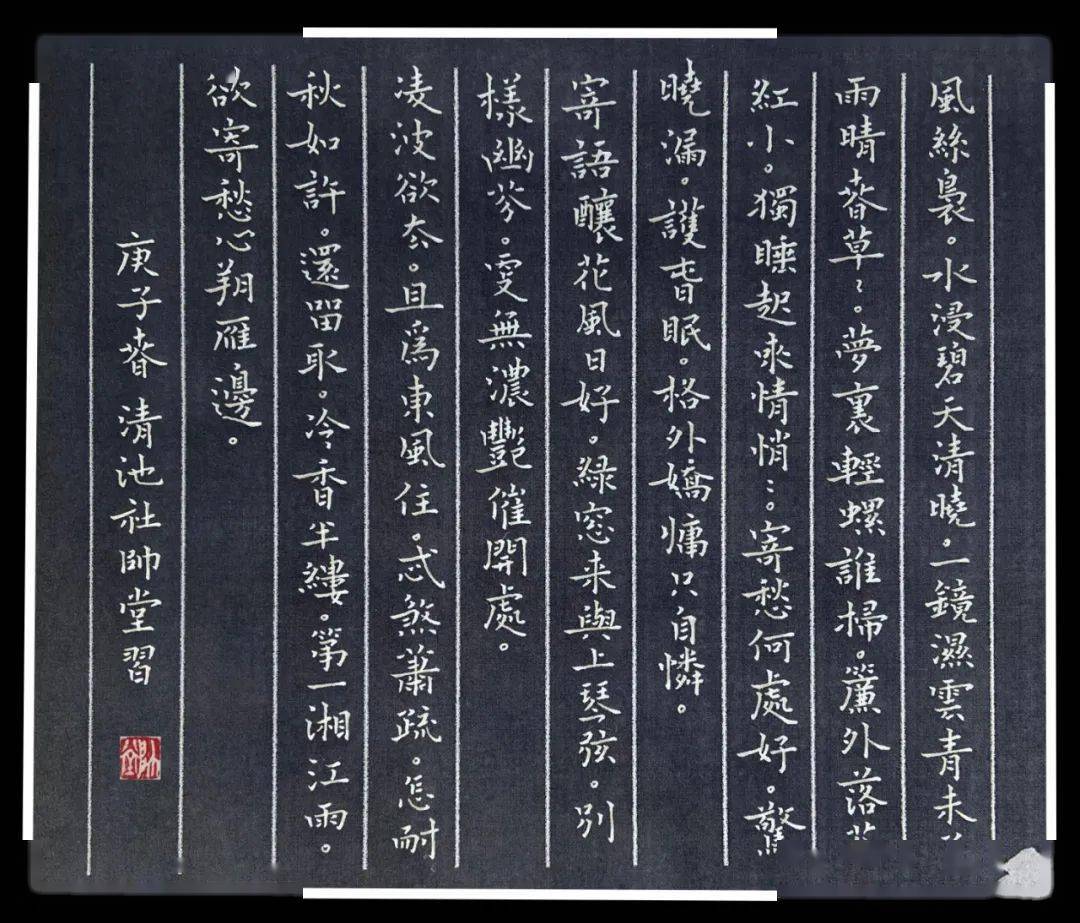 風絲裊。水浸碧天清曉。一鏡濕雲青未
雨晴春草〻。夢裏輕螺誰掃。簾外落
紅小。獨睡起來情悄〻。寄愁何處好。驚
曉漏。護春眠。格外嬌慵只自憐。
寄語釀花風日好。緑窓来與上琴弦。別
樣幽芬。更無濃豔催開處。
凌波欲去。且爲東風住。忒煞蕭疏。怎耐
秋如許。還留取。冷香半縷。第一湘江雨。
欲寄愁心朔雁邊。
庚子春 清池社帥堂習